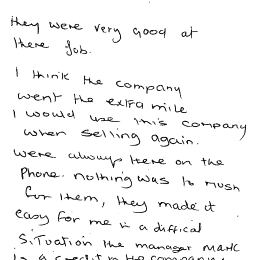 they were very good at
there job.
I think the company
went the extra mile
I would use this company
when selling again.
were always there on the
phone. nothing was to mush
for them, they made it
easy for me in a diffical
situation the manager mark
is a credit to the company